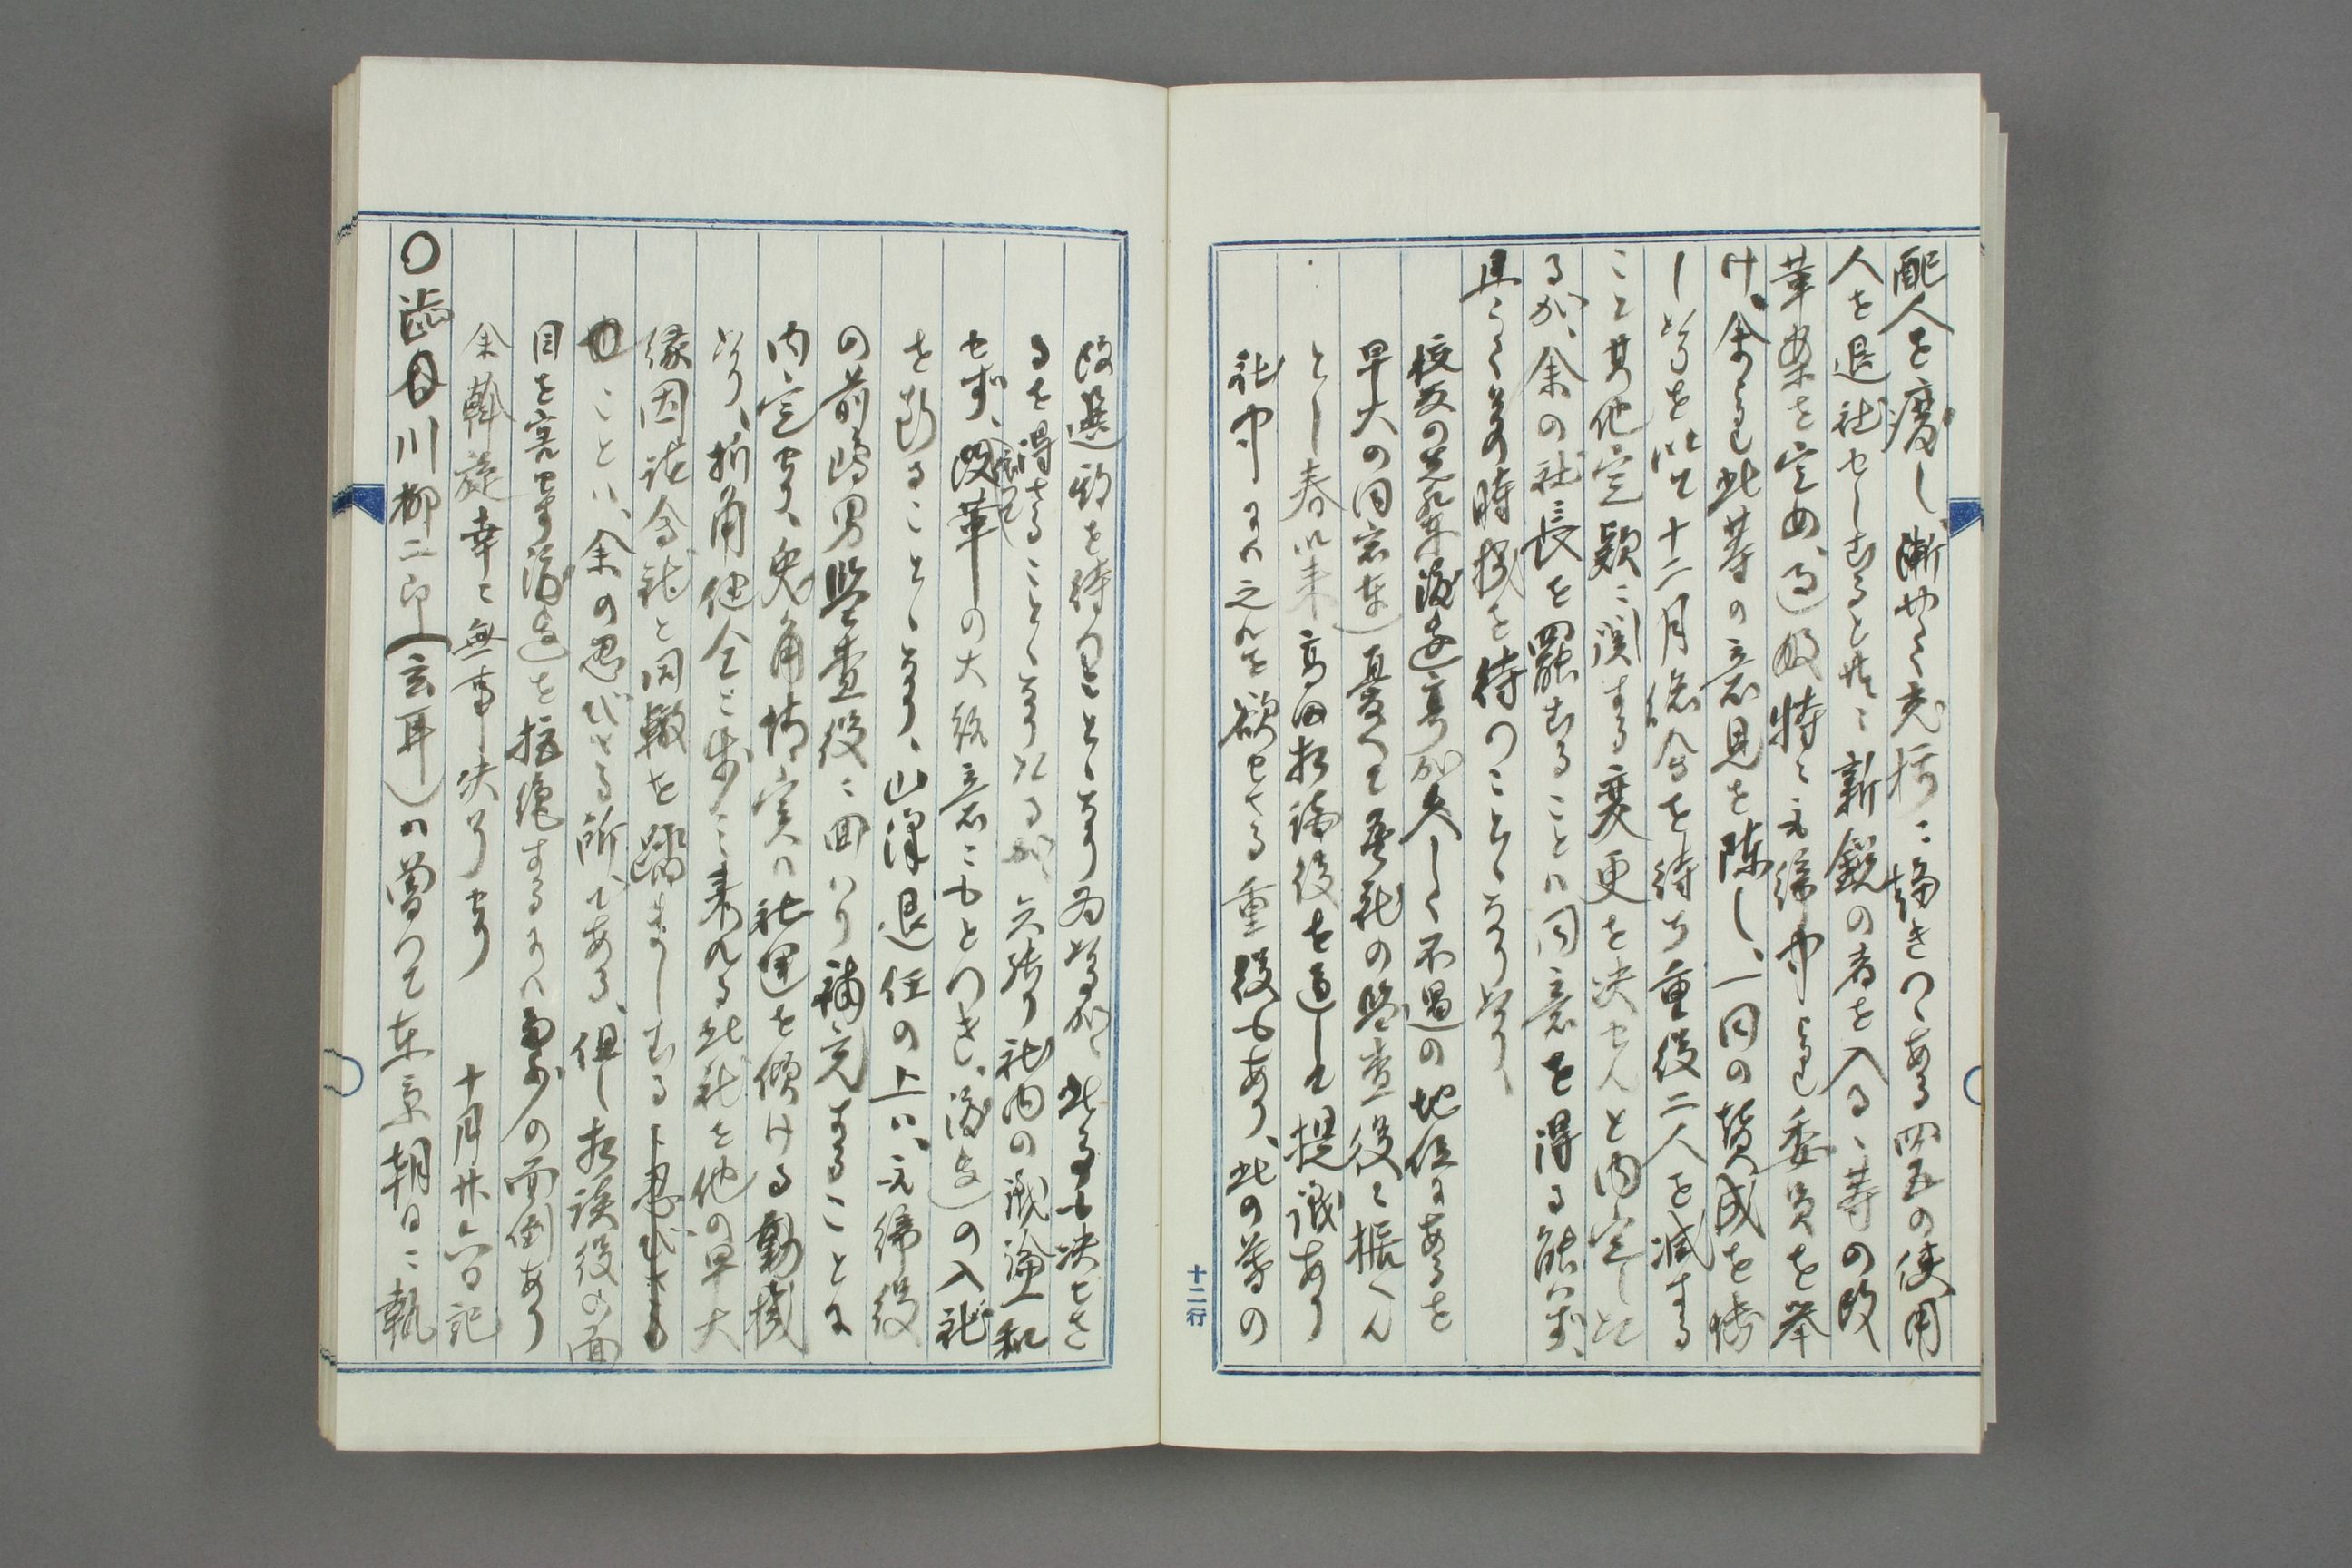 配人を廃し漸やく老朽に傾きつゝある四五の使用
人を退社せしむると共に新鋭の者を入るゝ等の改
革案を定め、特に元締中より委員を挙
げ、余より此等の意見を陳し、一同の賛成を博
しとるを以て十二月総会を待ち重役二人を減ずる
こと其他定款に関する変更を決せんと内定しと
るが、余の社長を罷むることハ同意を得る能ハず、
且らく其時機を待つことゝなりとり、
校友の先輩渡辺亨が久しく不遇の地位にあるを
早大の同窓 憂へて吾社の監査役に据へん
とし春以来高田相談役を通して提議あり
社中には之れを欲せざる重役もあり、此の等の
改選期を待つことゝなり居とるが、此る事も決せざ
るを得ざることゝなりとるが、矢張り社内の議論一和
せず、改革の大趣意にもとづき、渡辺の入社
を断ることゝなり、山澤退任の上ハ、元締役
の前嶋男監査役に回ハり補充することに
内定せり、兎角情実ハ社運を傾ける動機
とり、折角健全に歩ミ来れる此社を他の早大
縁因諸会社と同轍を踏ましむる
ことハ、余の忍びざる所である、但し相談役の面
目を害せず渡辺を拒絶するにハ多少の面倒あり
余斡旋幸に無事決了せり 十月廿六日記
〇澁川柳二郎(玄耳)ハ曽つて東京朝日に執
十二行